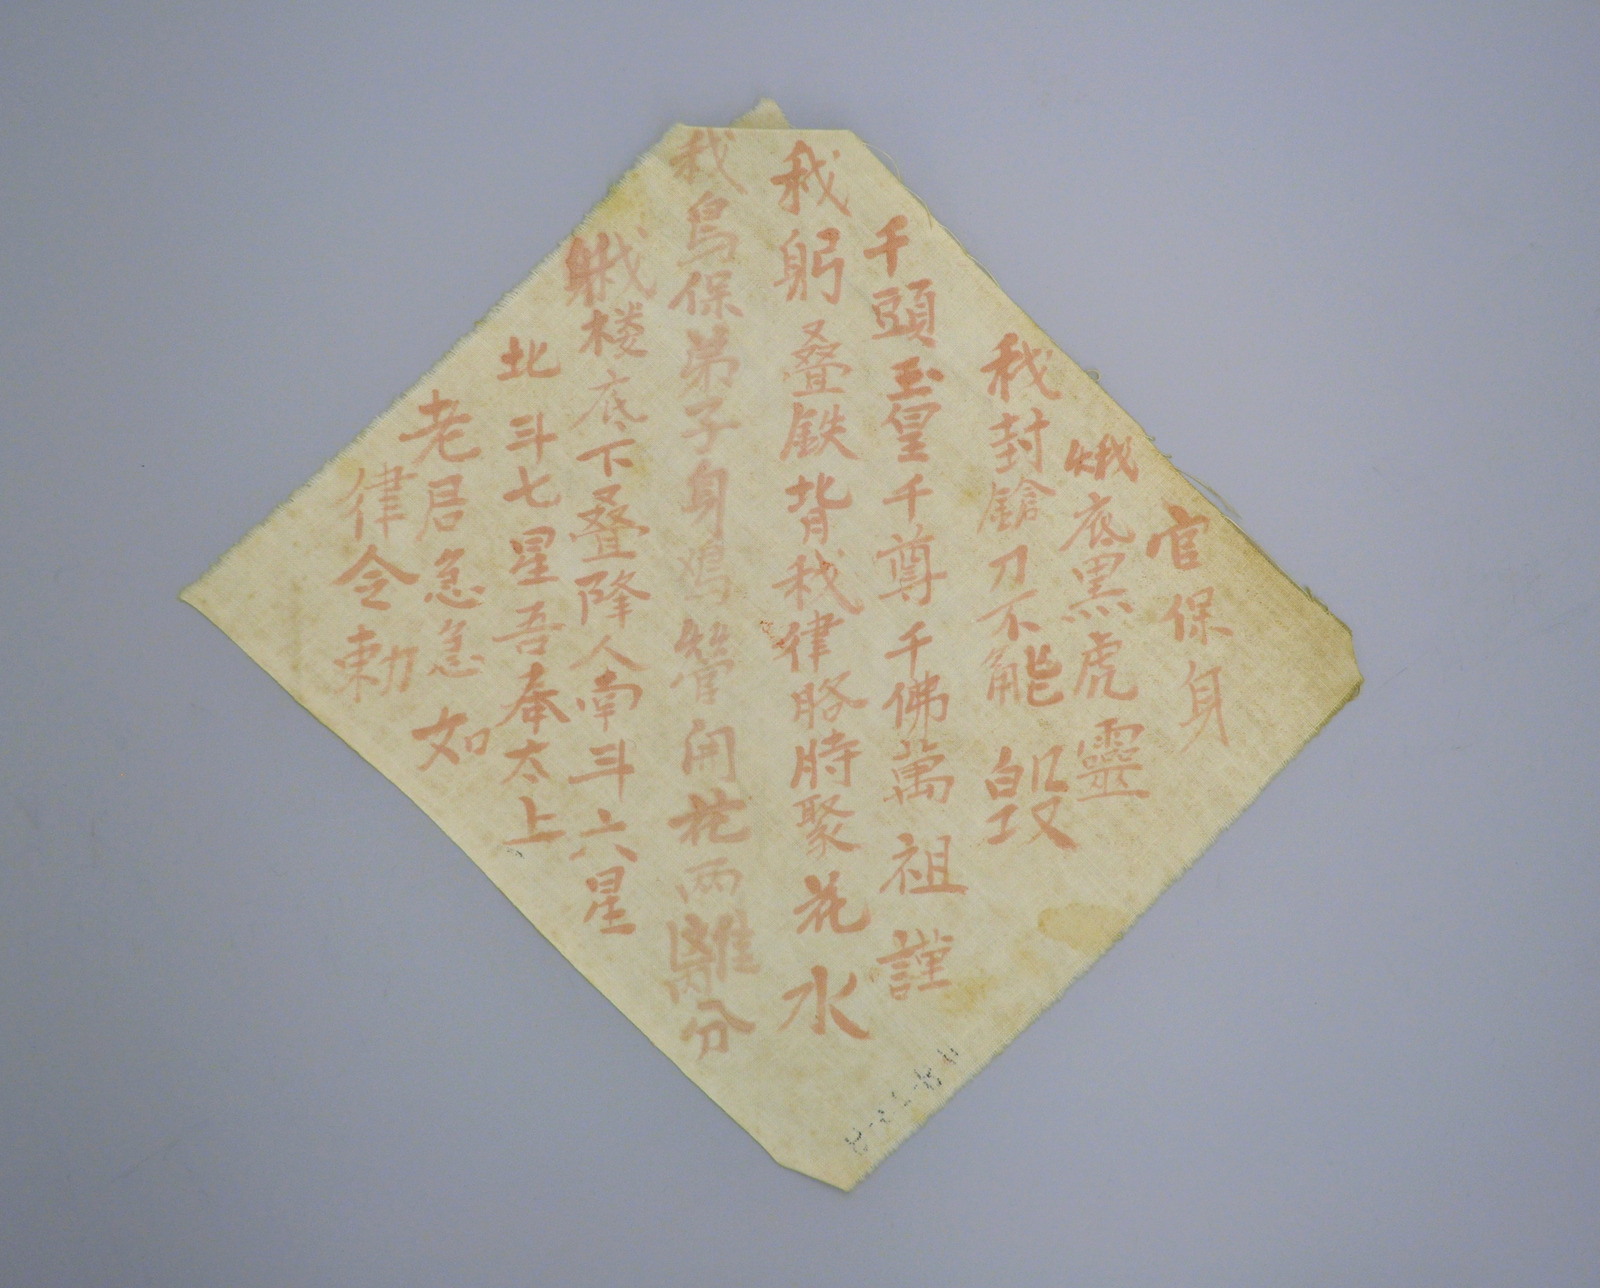 官保身
底黑虎靈
我封鎗刀不能毀
千頭玉皇千尊千佛萬祖謹
我躬叠鉄背我律胳時聚花水
我鳥保弟子身鳮管開花两離分
楼底下叠降人南斗六星
北斗七星吾奉太上
老君急急如
律令勅